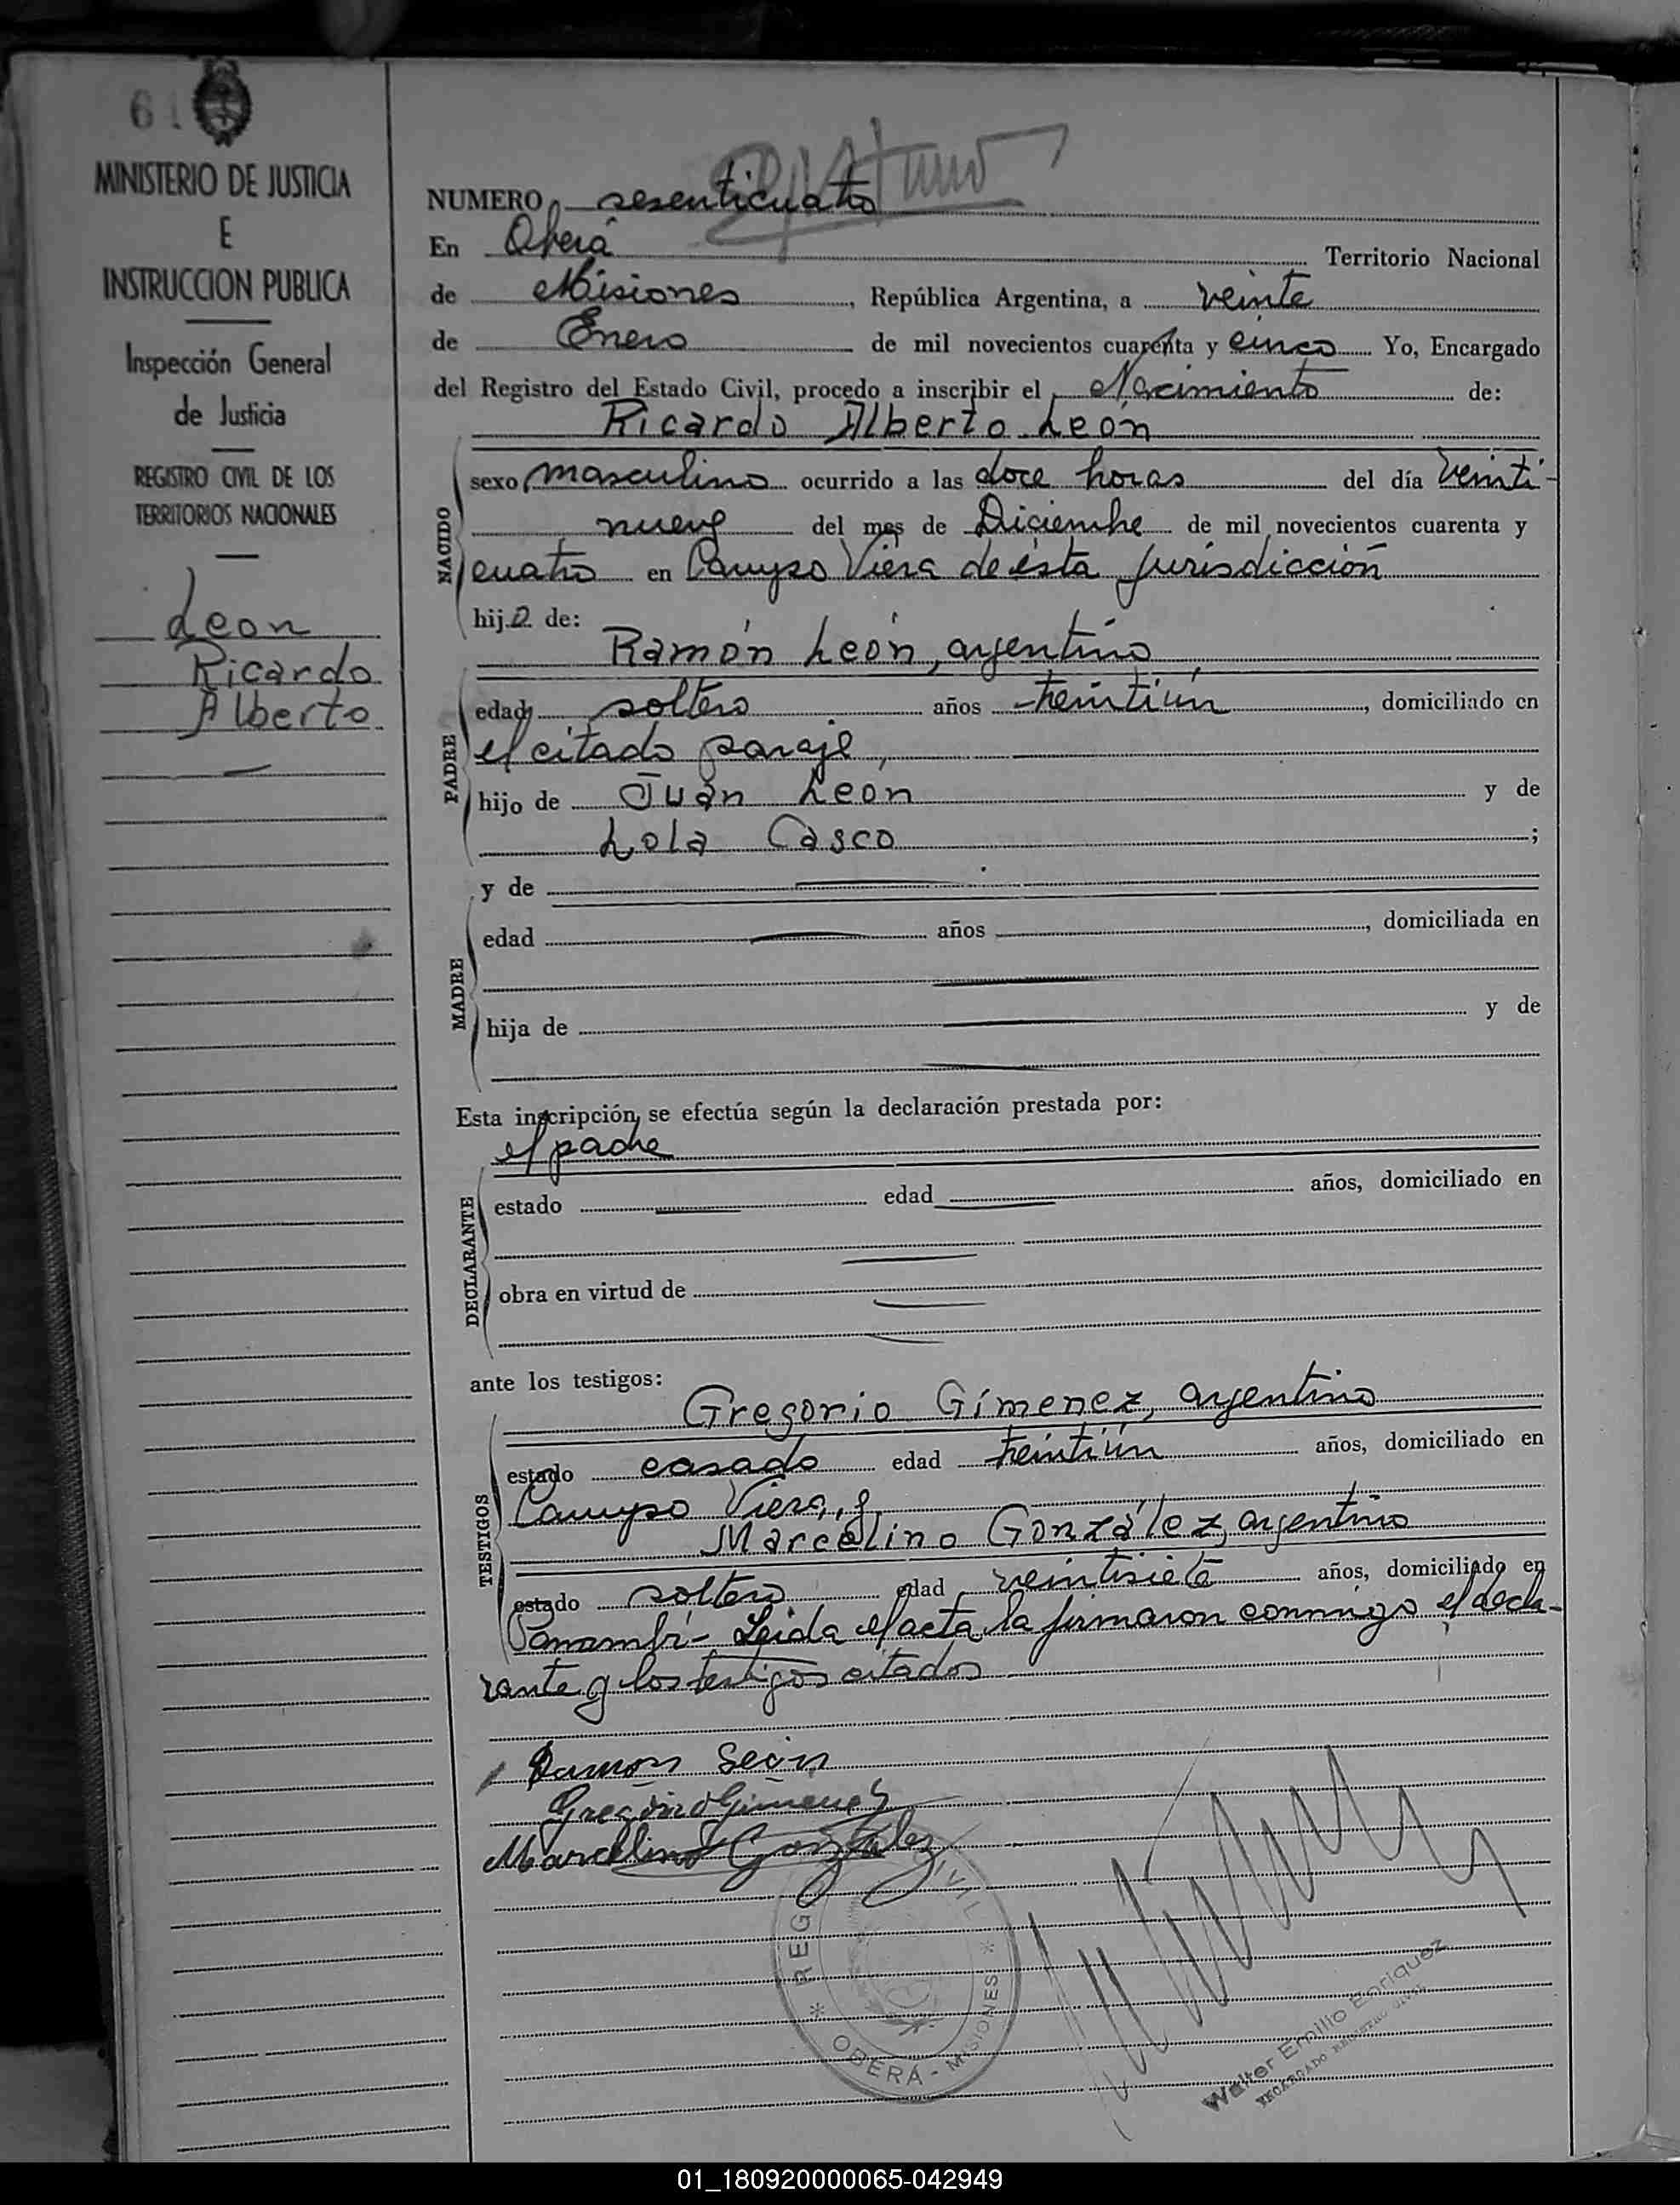 64
MINISTERIO DE JUSTICIA
E
INSTRUCCION PUBLICA
Inspección General
de Justicia
REGISTRO CIVIL DE LOS
TERRITORIOS NACIONALES
Leon
Ricardo
Alberto
NUMERO sesenticuatro
En Oberá Territorio Nacional
de Misiones, República Argentina, a veinte
de Enero de mil novecientos cuarenta y cinco Yo, Encargado
del Registro del Estado Civil, procedo a inscribir el Nacimiento de:
Ricardo Alberto León
NACIDO
sexo masculino ocurrido a las doce horas del día veinti-
nueve del mes de Diciembre de mil novecientos cuarenta y
cuatro en Campo Viera de ésta jurisdicción
hijo de:
Ramón León, argentino
PADRE
edad soltero años treintiún, domiciliado en
el citado paraje,
hijo de Juán León y de
Lola Casco;
y de
MADRE
edad años, domiciliada en
hija de y de
Esta inscripción se efectúa según la declaración prestada por:
el padre
DECLARANTE
estado edad años, domiciliado en
obra en virtud de
ante los testigos:
Gregorio Gímenez, argentino
TESTIGOS
estado casado edad treintiún años, domiciliado en
Campo Viera, y
Marcelino González, argentino
estado soltero edad veintisiete años, domiciliado en
Panambí- Leida el acta la firmaron conmigo el decla-
rante y los testigos citados
Ramón León
Gregorio Gimenez
Marcelino Gonzalez
REG CIVIL
OBERÁ - MISIONES
Walter Emilio Enriquez
ENCARGADO REGISTRO CIVIL
01_180920000065-042949